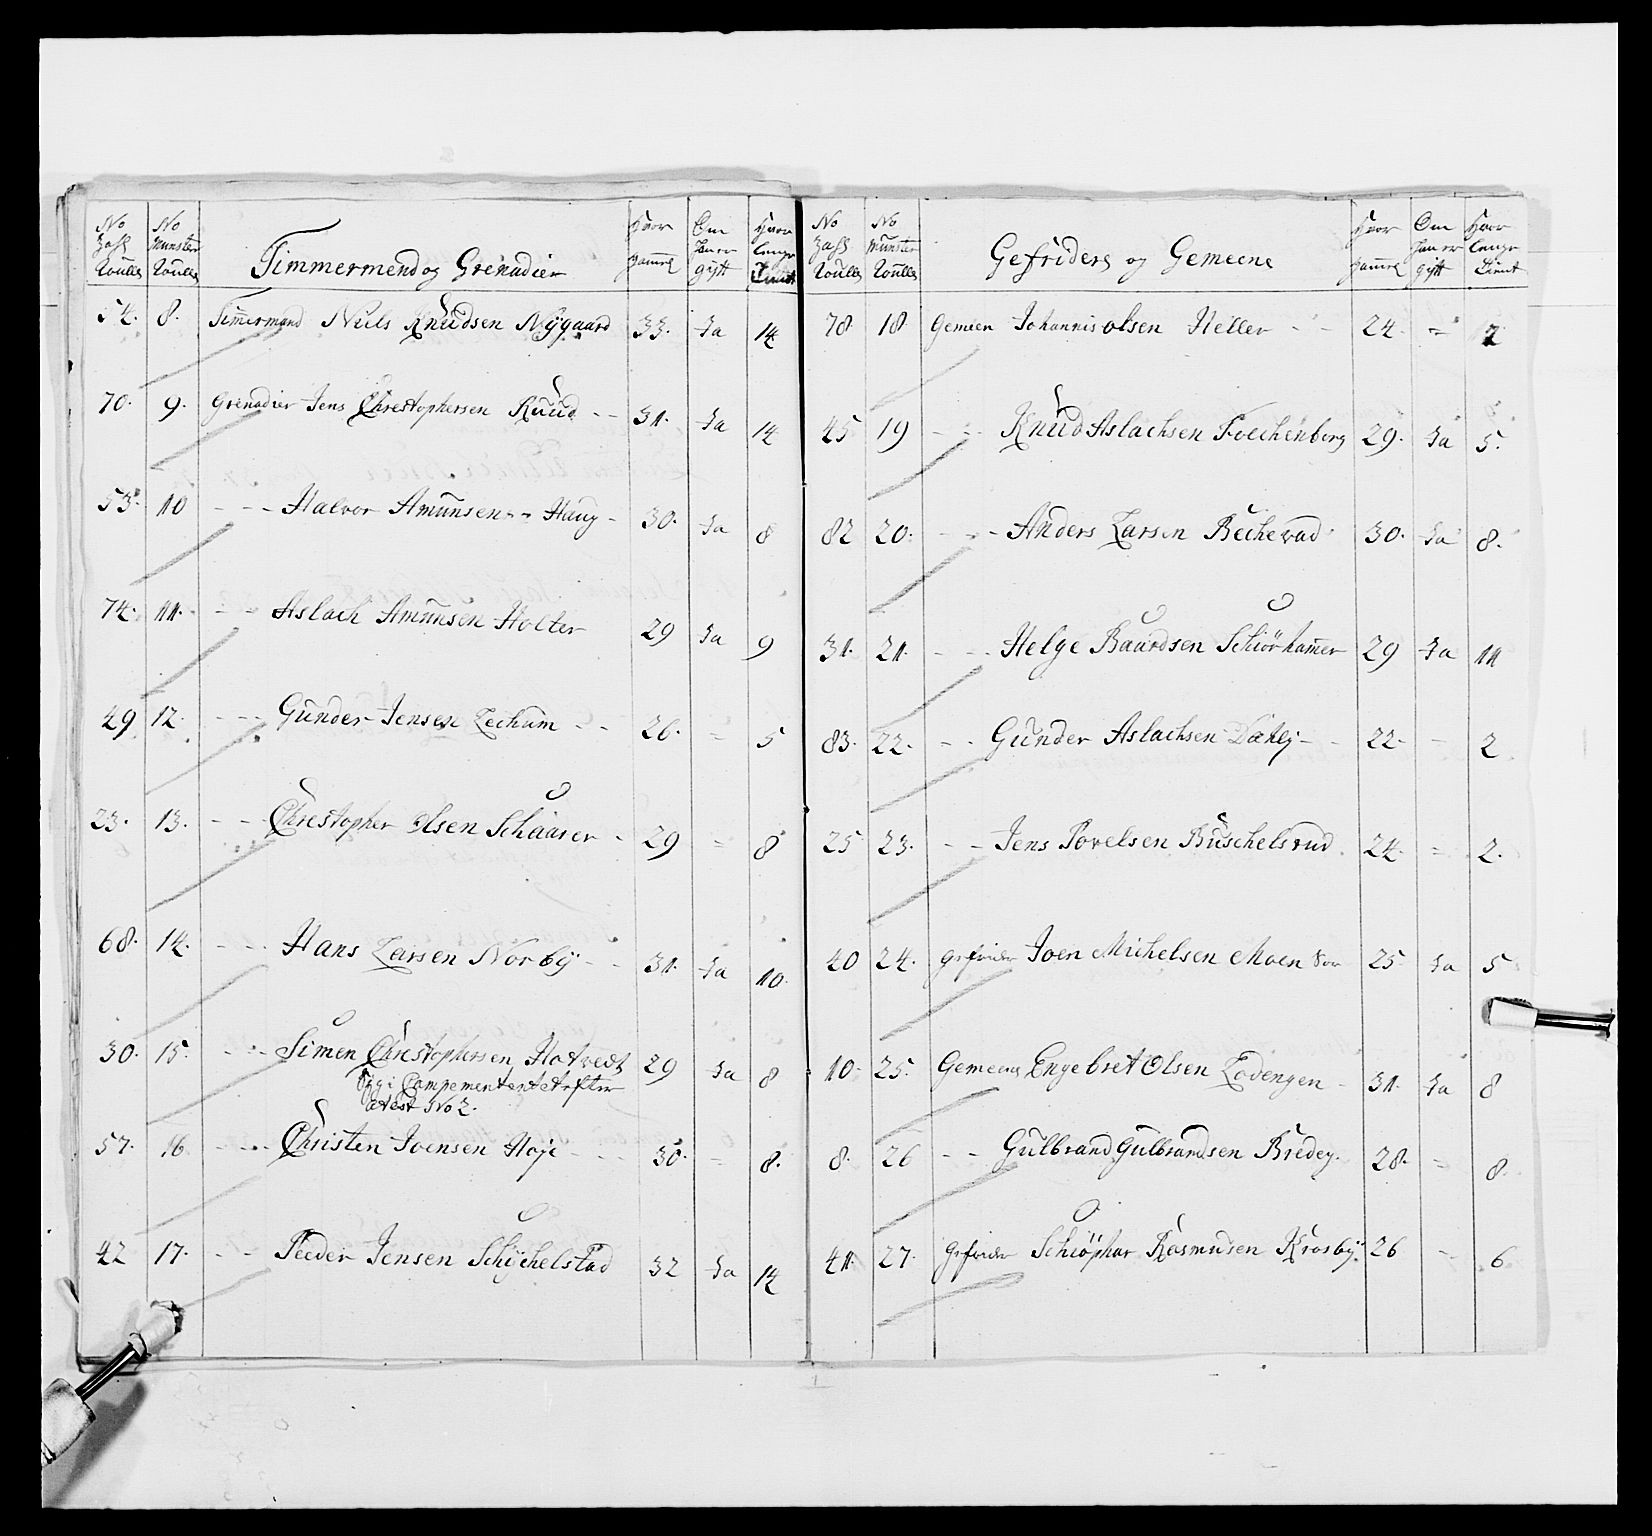 No No Hvor Om Hvor
Munster han er lenge
Roulle Roulle Timmermend og Grenadier gammel gift tient
54. 8. Timmermand Niels Knudsen Nÿgaard 33. Ja 14
70. 9. Grenadier Jens Chrestophersen Ruud - - 31. Ja 14
53. 10 - - - Halvor Amunsen - - Haug - 30. Ja 8
74. 11. - - Aslach Amunsen Holter 29 Ja 9
49 12. - - - Gunder Jensen Lechum - - 26. - 5
23. 13. - - - Chrestopher Olsen Schaarer - 29 = 8
68. 14. - - - Hans Larsen Norbÿ - - 31. Ja 10.
30. 15. - - - Simen Chrestophersen Hotvedt 29 Ja 8
Atest No 2.
57. 16 - - - Christen Joensen Hoje - - - 30. - 8.
42 17. - - Peeder Jensen Schÿchelstad 32 Ja 14
No No Hvor Om Hvor
Munster han er lenge
Roulle Roulle Gefriders og Gemeene gammel gift tient
78 18 Gemeen Johannis olsen Heller - - 24. = 2
45 19 - - - Knud Aslachsen Foechenberg 29. Ja 5.
82 20. - - - Anders Larsen Becherad 30. Ja 8.
31. 21. - - - Helge Baardsen Schiörhammer 29 Ja 11
83. 22. - - Gunder Aslachsen Dæhlj - - 22. - 2
25 23. - - Jens Povelsen Buschelsrud 24. = 2.
40 24. gefrider Joen Michelsen Moen 25 Ja 5
10. 25. Gemeene Engebret Olsen Lovengen - 31. Ja 8
8. 26 - - Gulbrand Gulbrandsen Bredey. 28. = 8.
41. 27. gefrider Schiöphar Rasmusen Krosbÿ 26 - 6